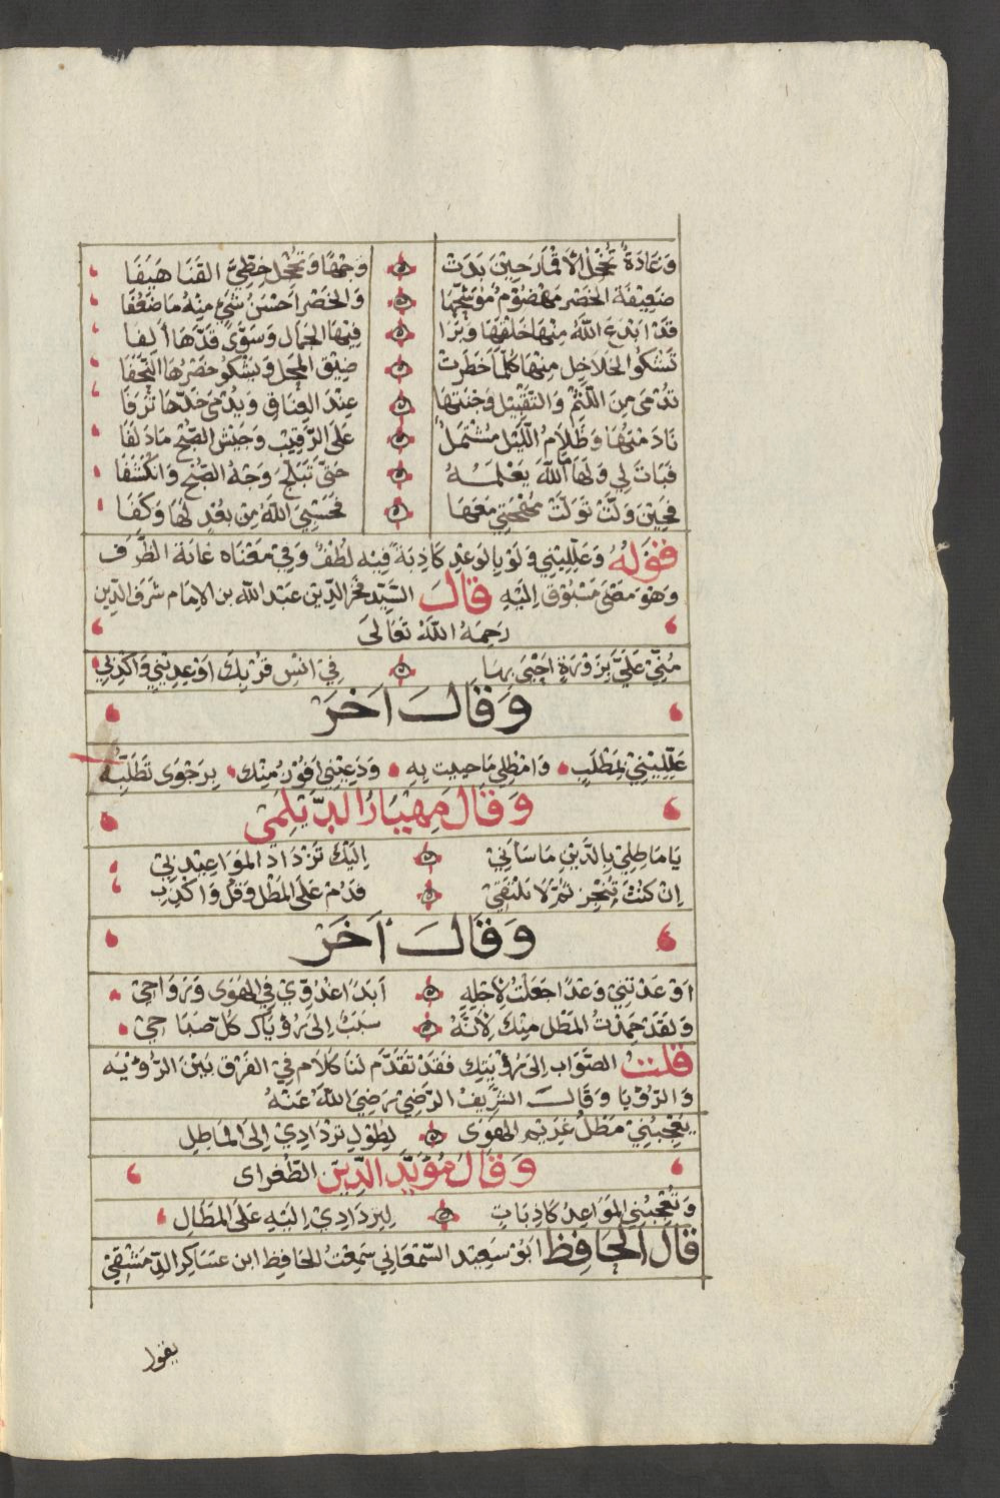 وَغَادَةٌ تُخْجِلُ الأقْمَارَ حِيْنَ بَدَتْ وَجْهًا وَتُخْجِلُ خِطِّيَّ القَنَا هَيَفَا
ضَعِيْفَةُ الخَصْرِ مَهْضُوْمٌ مُوَشَّحُهَا وَالخَصْرُ احْسَنُ شَيْءٍ مِنْهُ مَا ضَعُفَا
قَدْ ابْدَعَ اللّٰهُ مِنْهَا خَلْقَهَا وَبَرَا فِيْهَا الجَمَال وَسَوَّى قَدَّهَا أَلِفَا
تَشْكُو الخَلَاخِلُ مِنْهَا كُلَّمَا خَطَرَتْ ضِيْقَ المَحَلِّ وَيَشْكُو خَصْرُهَا
تَدْمَى مِنَ اللَّثْمِ وَالتَّقْبِيْلِ وَجْنَتُهَا عِنْدَ العِنَاقِ وَيُدْمِي خَدَّهَا تَرَفَا
نَادَمْتُهَا وَظَلَامُ اللَّيْلِ مُشْتَمِلٌ عَلَى الرَّقِيْبِ وَجَيْشُ الصُّبْحِ مَا دَلَفَا
فَبَاتَ لِي وَلَهَا مَا اللّٰهُ يَعْلَمُـــهُ حَتَّى تَبَلَّجَ وَجْهُ الصُّبْحِ وَانْكَشَفَا
فَحِيْنَ وَلَّتْ تَوَلَّتْ مُهْجَتِي مَعَهَا فَحَسْبِيَ اللّٰهُ مِنْ بَعْدٍ لَهَا وَكَفَا
فقَوْلُهُ وَعَلِّلِيْنِي وَلَوْ بِالوَعْدِ كَاذِبَةً فِيْهِ لُطْفٌ وَفِي مَعْنَاه غَايَة الظَّرَف
وَهُوَ مَعْنَى مَسْبُوْق اِلَيْهِ قَالَ السَّيِّد فخر الدِّيْن عَبْد اللّٰه بن الامَام شَرَف الدِّيْن
رَحِمَهُ اللّٰهُ تَعَالَى
مُنِّيْ عَلَيَّ بِزَوْرَةٍ احْيَى بِهَا فِيْ انْسِ قُرْبِكِ اوْ عِدِيْنِي وَاكْذِبِي
وَقَالَ آخَرُ
عَلِّلِيْنِيْ بِمَطْلَبٍ وَامْطُلِي مَا حييت بِهِ وَدَعِيْنِي افُوْزُ مِنْكِ بِرَجْوَى تَطَلُّبِه
وَقَالَ مِهْيَارُ الدَّيْلَمِي
يَا مَاطِلِيْ بِالدَّيْنِ مَا سَاءَنِيْ اِلَيْكَ تَرْدَادِ المَوَاعِيْدِ بِيْ
اِنْ كُنْتَ تُنْجِز ثُمَّ لَا نَلْتَقِيْ فَدُمْ عَلَى المَطْل وَقُلْ وَاكْذِبِ
وَقَالَ آخَرُ
اوْعَدْتِنِيْ وَعْدًا جَعَلْتُ لِأَجْلِهِ أَبَدًا غُدُوِّيْ فِي الهَوَى وَرَوَاحِيْ
وَلَقَدْ حَمِدْتُ المَطْلَ مِنْكِ لِأَنَّهُ سَبَبٌ اِلَى رُؤْيَاكِ كُلَّ صَبَاحِيْ
قُلْتُ الصَّوَاب اِلَى رُؤْيَتِكِ فَقَدْ تَقَدَّم لَنَا كَلَام فِيْ الفَرْقِ بَيْنَ الرُّؤْيَه
وَالرُّؤْيَا وَقَالَ الشَّرِيْفُ الرَّضِي رَضِيَ اللّٰهُ عَنْهُ
يُعْجِبُنِيْ مَطْلُ غَرِيْمِ الهَوَى لِطُوْلِ تَرْدَادِيْ اِلَى المَاطِلِ
وَقَالَ مُؤَيَّدُ الدِّيْنِ الطُّغْرَاى
وَتُعْجِبُنِي المَوَاعِدُ كَاذِبَاتٍ لِتَرْدَادِيْ اِلَيْهِ عَلَى المَطَالِ
قَالَ الحَافِظُ ابُوْ سَعِيْد السَّمْعَانِي سَمِعْتُ الحَافِظ ابن عسَاكِر الدِّمَشْقِيْ
يقول